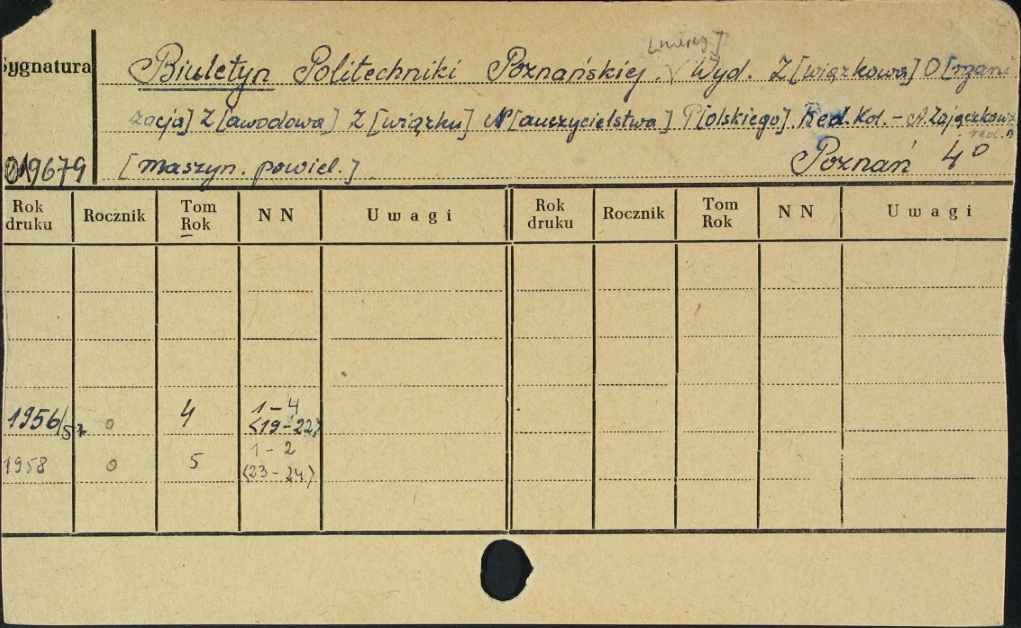 [niereg]
Sygnatura Biuletyn Politechniki Poznańskiej. Wyd. Z[wiązkowa] O[rgani-
zacja] Z[awodowa] Z[wiązku] N[auczycielstwa] P[olskiego]. Red. Kol. - A. Zajączkowska
019679 [maszyn. powiel.] Poznań 4°
Rok druku Rocznik Tom Rok NN Uwagi Rok druku Rocznik Tom Rok NN Uwagi
1956/57 o 4 1-4 (19-22)
1958 o 5 1-2 (23-24)